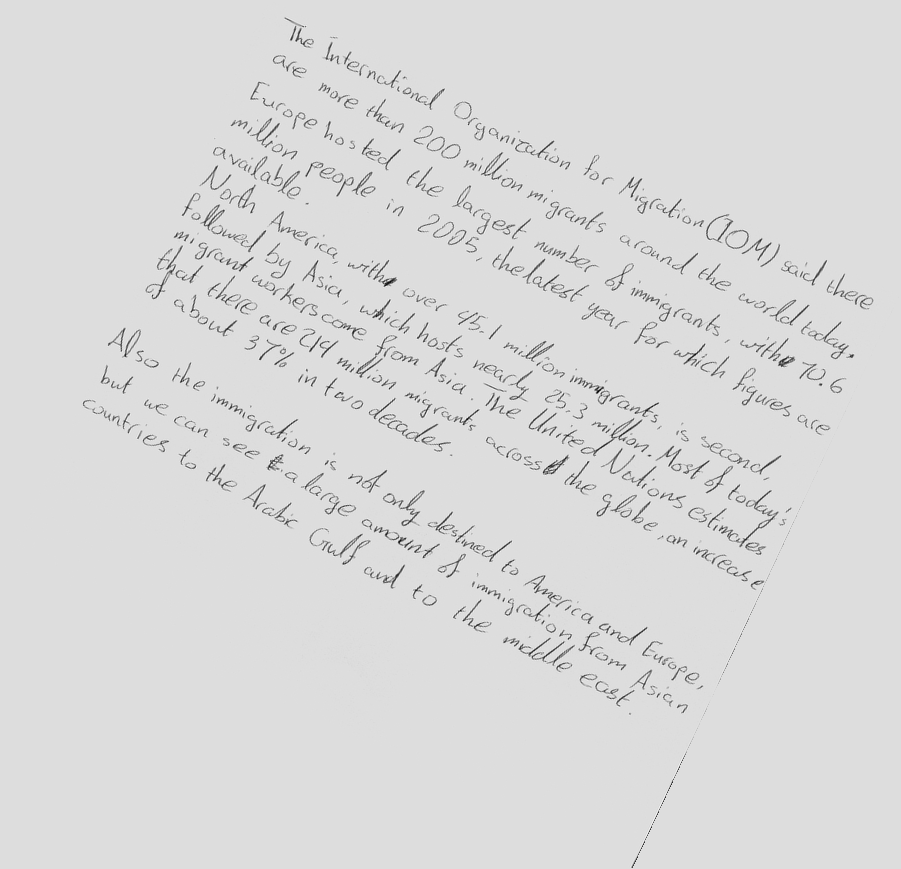 The International Organization for Migration (IOM) said there
are more than 200 million migrants around the world today.
Europe hosted the largest number of immigrants, with 70.6
million people in 2005, the latest year for which figures are
available.
North America, with over 45.1 million immigrants, is second,
followed by Asia, which hosts nearly 25.3 million. Most of today's
migrant workers come from Asia. The United Nations estimates
that there are 214 million migrants across the globe, an increase
of about 37% in two decades.
Also the immigration is not only destined to America and Europe,
but we can see a large amount of immigration from Asian
countries to the Arabic Gulf and to the middle east.